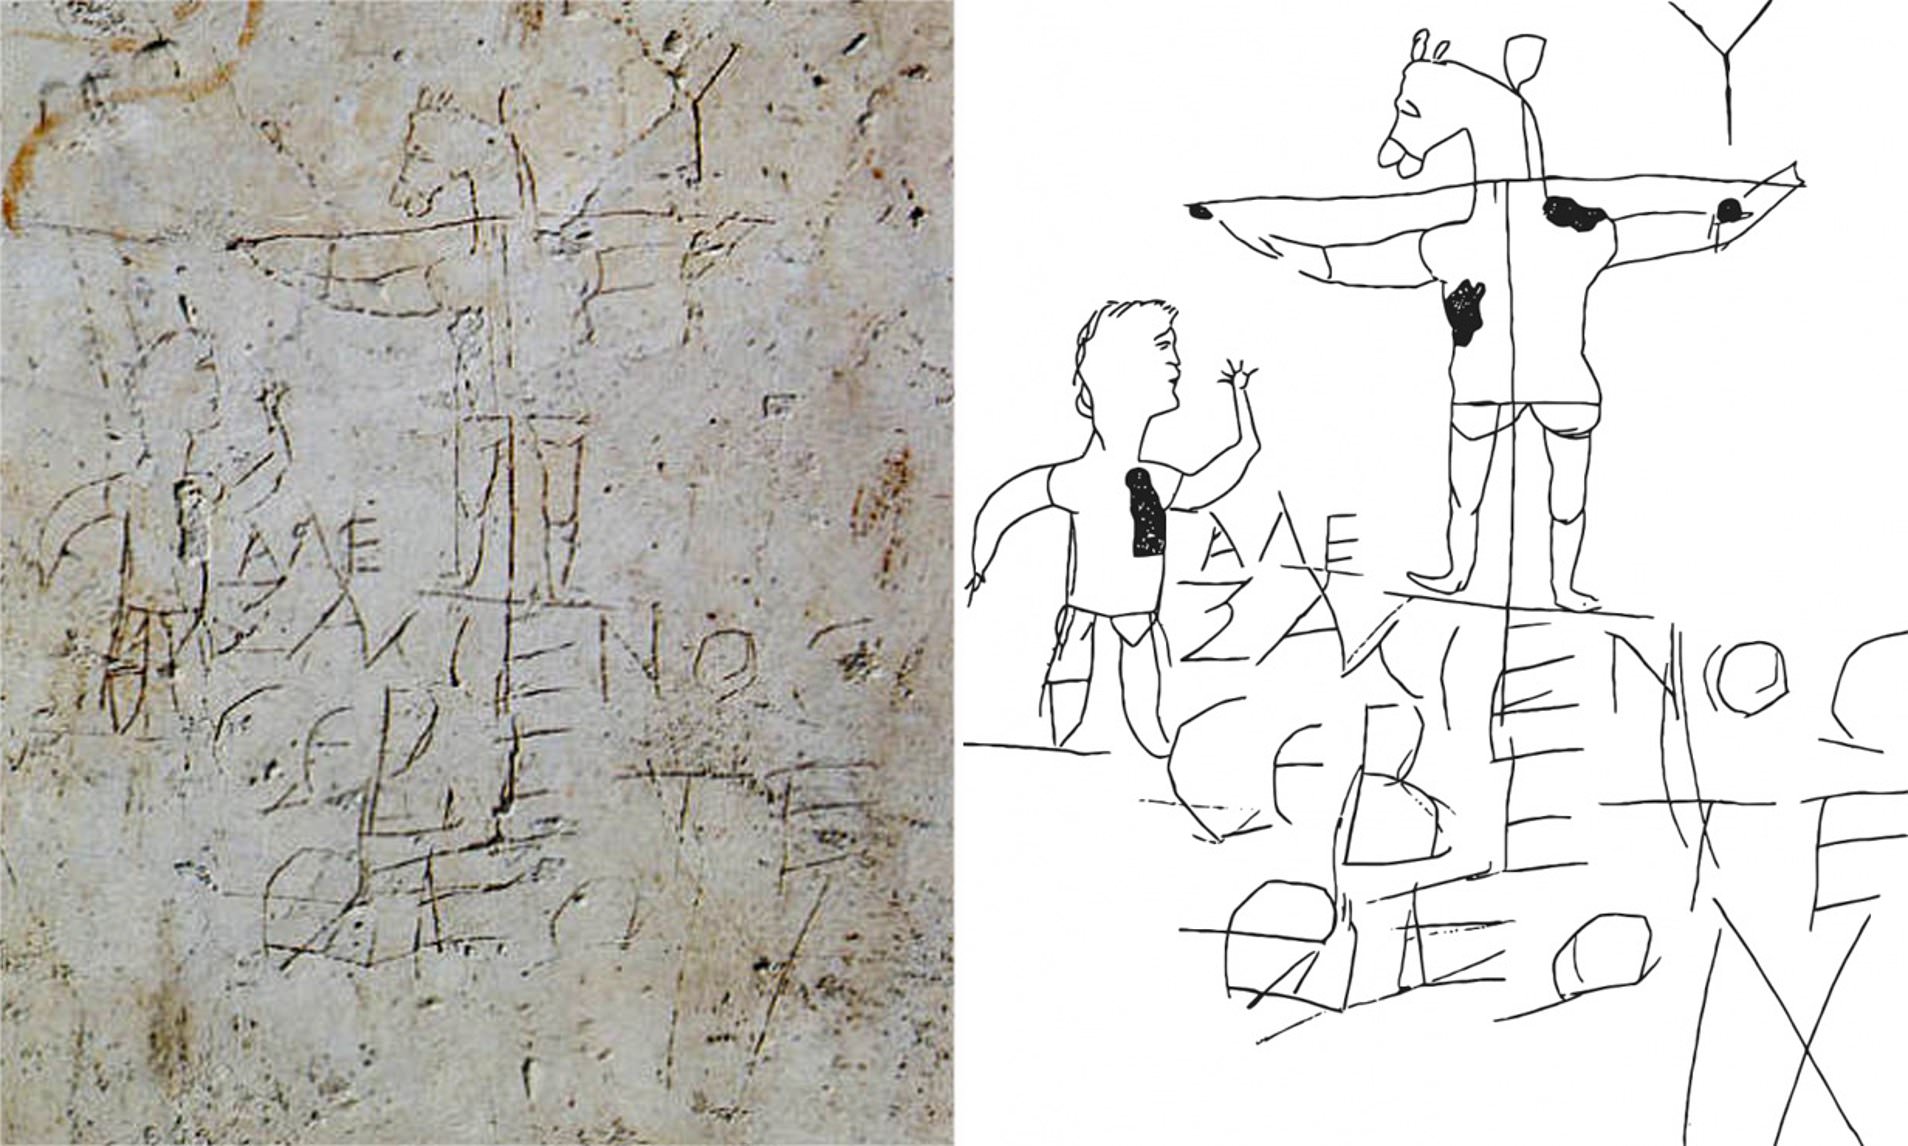 Υ
ΑΛΕ
ΞΑΜΕΝΟC
CΕΒΕΤΕ
ΘΕΟΝ
Υ
ΑΛΕ
ΞΑΜΕΝΟC
CΕΒΕΤΕ
ΘΕΟΝ